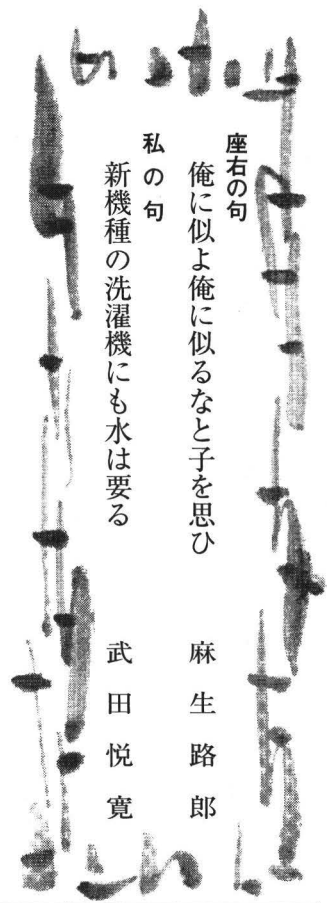 座右の句
俺に似よ俺に似るなと子を思ひ　麻生路郎
私の句
新機種の洗濯機にも水は要る　武田悦寛